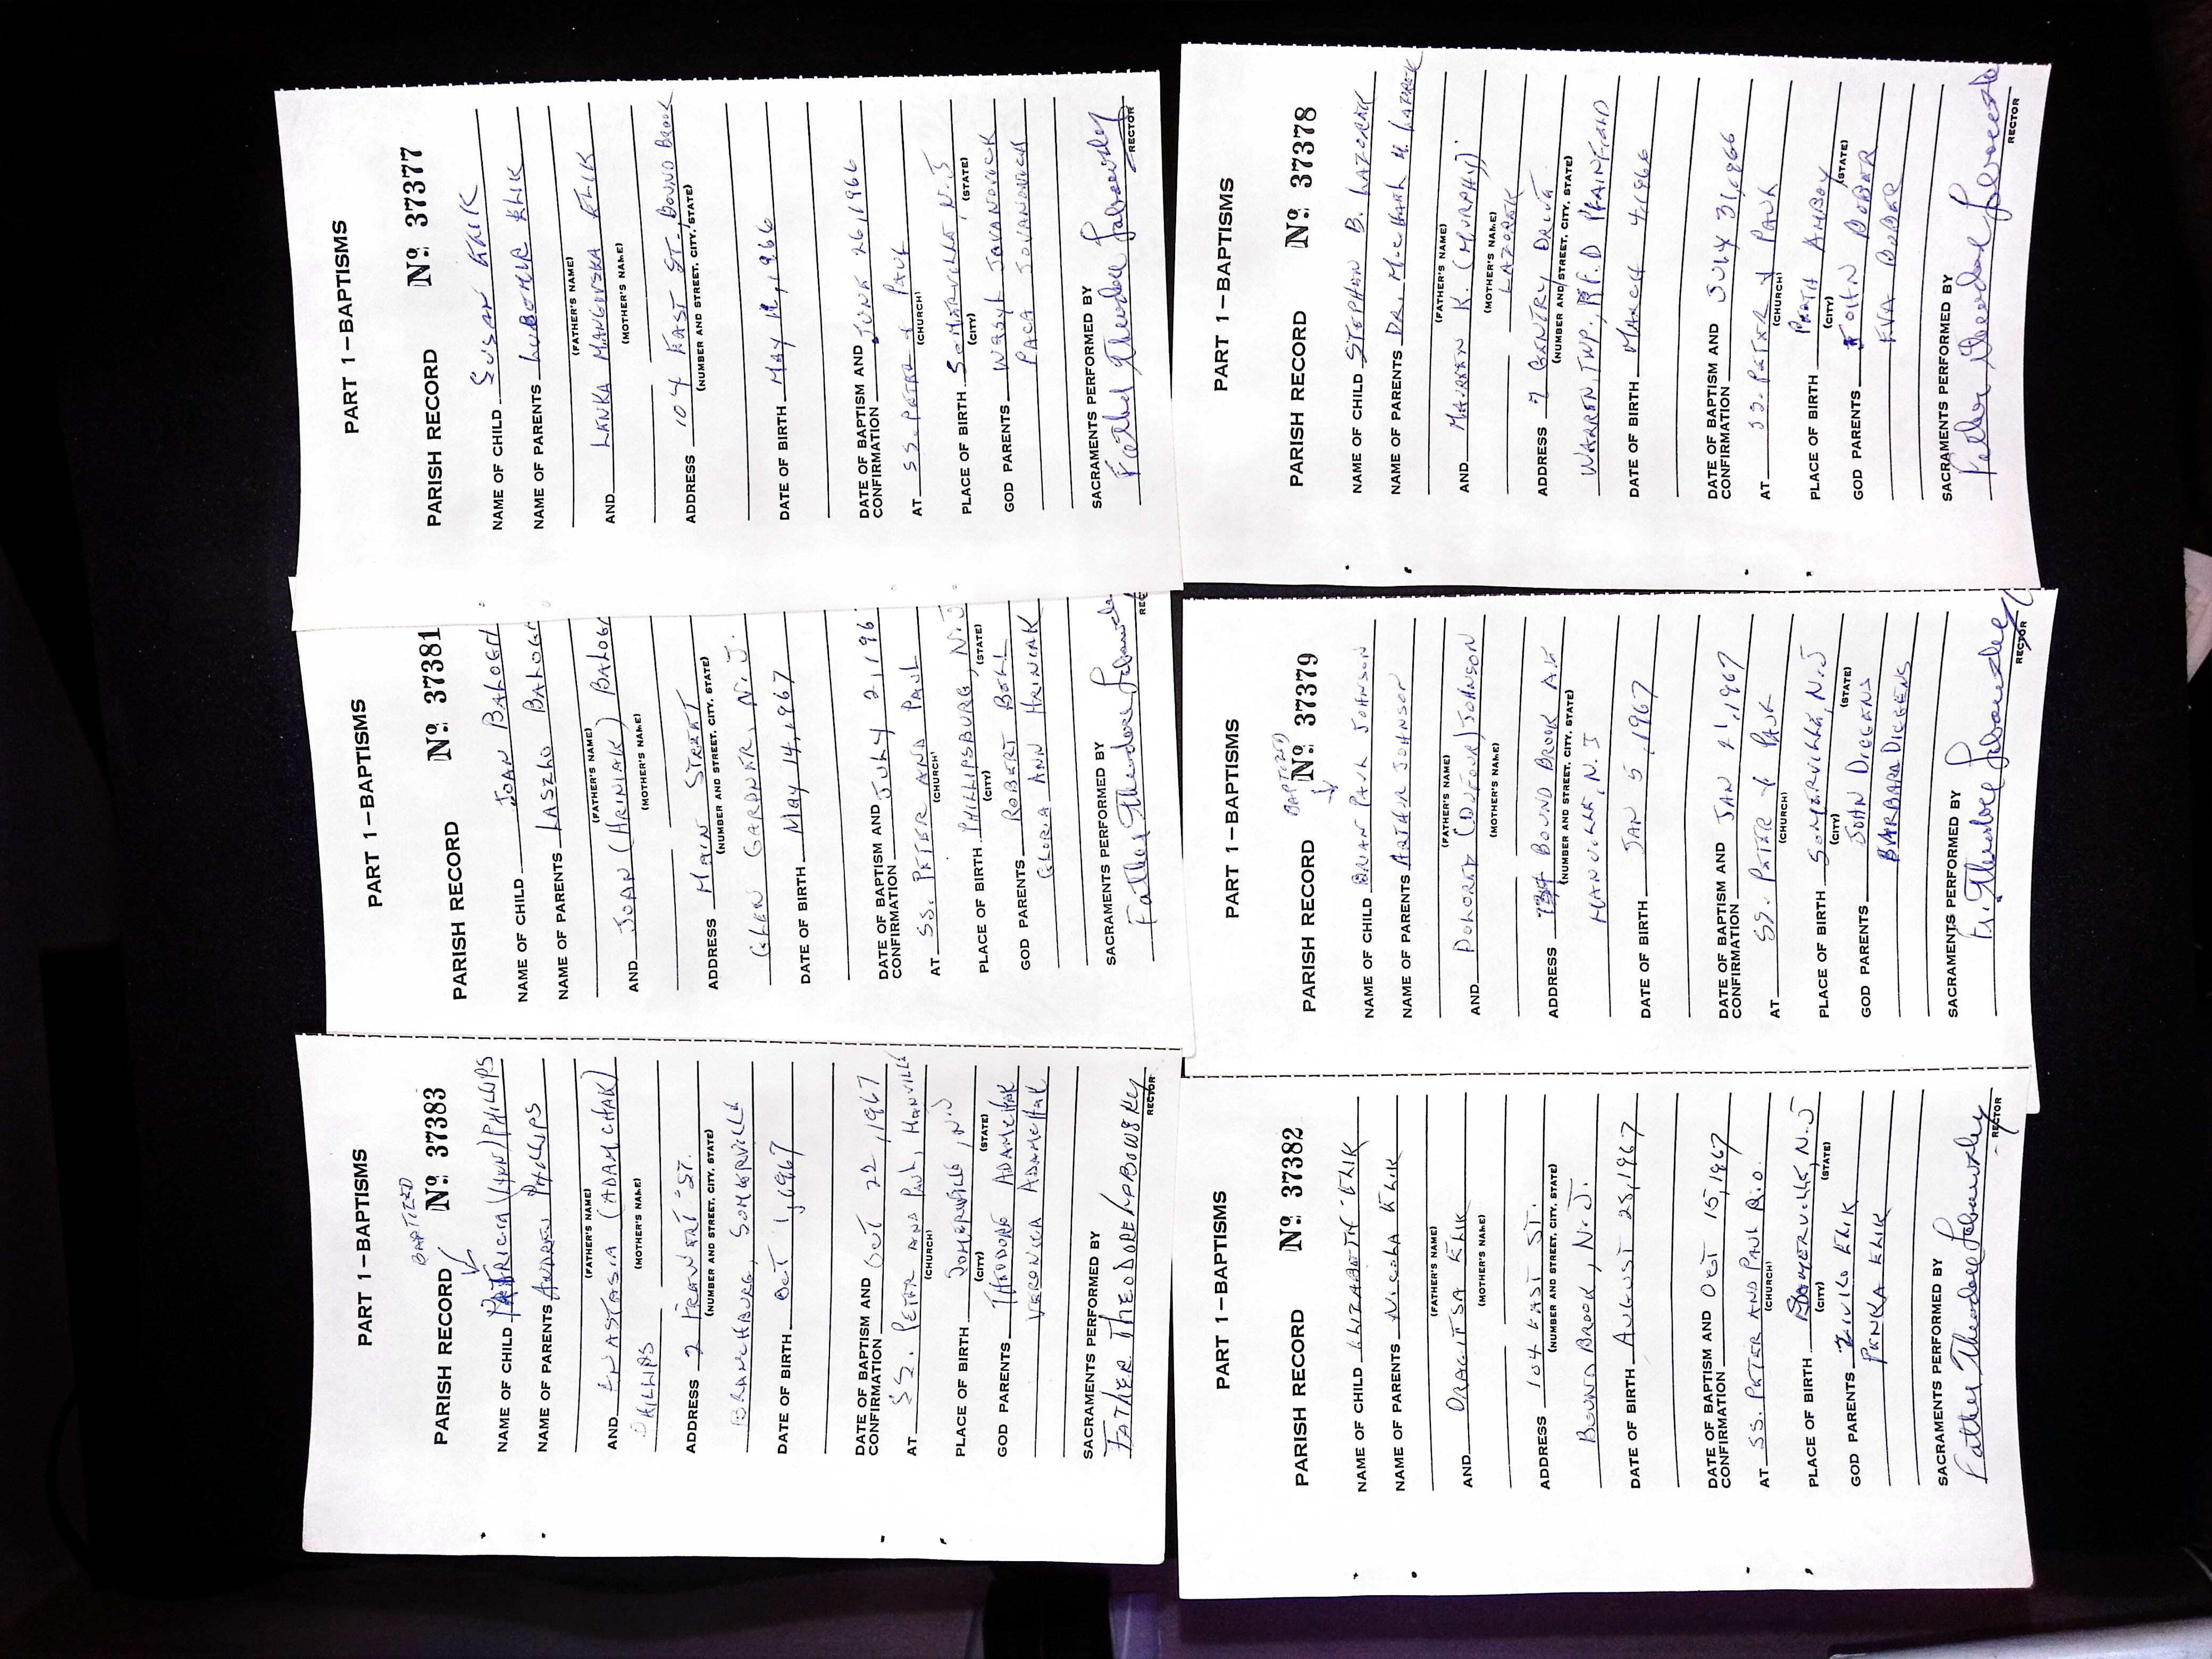 PART 1—BAPTISMS
BAPTIZED
PARISH RECORD Nº 37383
NAME OF CHILD PATRICIA (LYNN) PHILLIPS
NAME OF PARENTS ANDREW PHILLIPS
(FATHER'S NAME)
AND ENASTASIA (ADAMCHAK)
(MOTHER'S NAME)
PHILLIPS
ADDRESS 2 ST.
(NUMBER AND STREET, CITY, STATE)
BRANCHBURG, SOMERVILLE
DATE OF BIRTH OCT 1, 1967
DATE OF BAPTISM AND
CONFIRMATION OCT 22, 1967
AT SS. PETER AND PAUL, MANVILLE
(CHURCH)
PLACE OF BIRTH SOMERVILLE, N.J
(CITY) (STATE)
GOD PARENTS THEODORE ADAMCHAK
VERONICA ADAMCHAK
SACRAMENTS PERFORMED BY
FATHER THEODORE LABOWSKY
RECTOR
PART 1—BAPTISMS
PARISH RECORD Nº 37381
NAME OF CHILD JOAN BALOGH
NAME OF PARENTS LASZLO BALOGH
(FATHER'S NAME)
AND JOAN (HRINIAK) BALOGH
(MOTHER'S NAME)
ADDRESS MAIN STREET
(NUMBER AND STREET, CITY, STATE)
GLEN GARDNER, N.J.
DATE OF BIRTH MAY 14, 1967
DATE OF BAPTISM AND
CONFIRMATION JULY 2, 196
AT SS. PETER AND PAUL
(CHURCH)
PLACE OF BIRTH PHILLIPSBURG, N.J
(CITY) (STATE)
GOD PARENTS ROBERT BELL
GLORIA ANN HRINIAK
SACRAMENTS PERFORMED BY
Father Theodore Labowsky
REC
PART 1—BAPTISMS
PARISH RECORD Nº 37377
NAME OF CHILD SUSAN ELIK
NAME OF PARENTS LUBOMIR ELIK
(FATHER'S NAME)
AND LENKA MANGOVSKA ELIK
(MOTHER'S NAME)
ADDRESS 104 EAST ST., BOUND BROOK
(NUMBER AND STREET, CITY, STATE)
DATE OF BIRTH MAY , 1966
DATE OF BAPTISM AND
CONFIRMATION JUNE 26, 1966
AT SS. PETER & PAUL
(CHURCH)
PLACE OF BIRTH SOMERVILLE, N.J
(CITY) (STATE)
GOD PARENTS WASYL JOVANOVICK
PACA JOVANOVICH
SACRAMENTS PERFORMED BY
Father Theodore Labowsky
RECTOR
PART 1—BAPTISMS
PARISH RECORD Nº 37382
NAME OF CHILD ELIZABETH ELIK
NAME OF PARENTS NICOLA ELIK
(FATHER'S NAME)
AND DRAGITSA ELIK
(MOTHER'S NAME)
ADDRESS 104 EAST ST.
(NUMBER AND STREET, CITY, STATE)
BOUND BROOK, N.J.
DATE OF BIRTH AUGUST 28, 1967
DATE OF BAPTISM AND
CONFIRMATION OCT 15, 1967
AT SS. PETER AND PAUL R.O.
(CHURCH)
PLACE OF BIRTH SOMERVILLE, N.J
(CITY) (STATE)
GOD PARENTS ZIVKO ELIK
PENKA ELIK
SACRAMENTS PERFORMED BY
Father Theodore Labowsky
RECTOR
PART 1—BAPTISMS
BAPTIZED
PARISH RECORD Nº 37379
NAME OF CHILD BRIAN PAUL JOHNSON
NAME OF PARENTS ARTHUR JOHNSON
(FATHER'S NAME)
AND DOLORES (DUFOUR) JOHNSON
(MOTHER'S NAME)
ADDRESS 734 BOUND BROOK AVE
(NUMBER AND STREET, CITY, STATE)
MANVILLE, N.J
DATE OF BIRTH JAN 5, 1967
DATE OF BAPTISM AND
CONFIRMATION JAN 21, 1967
AT SS. PETER & PAUL
(CHURCH)
PLACE OF BIRTH SOMERVILLE, N.J
(CITY) (STATE)
GOD PARENTS JOHN DIGGENS
BARBARA DIGGENS
SACRAMENTS PERFORMED BY
Fr. Theodore Labowsky
RECTOR
PART 1—BAPTISMS
PARISH RECORD Nº 37378
NAME OF CHILD STEPHEN B. LAZOREK
NAME OF PARENTS DR. MICHAEL H. LAZOREK
(FATHER'S NAME)
AND MAUREEN K. (MURPHY)
(MOTHER'S NAME)
LAZOREK
ADDRESS 7 GENTRY DRIVE
(NUMBER AND STREET, CITY, STATE)
WARREN, TWP., RF.D PLAINFIELD
DATE OF BIRTH MARCH 4, 1966
DATE OF BAPTISM AND
CONFIRMATION JULY 31, 1966
AT SS. PETER & PAUL
(CHURCH)
PLACE OF BIRTH PERTH AMBOY
(CITY) (STATE)
GOD PARENTS JOHN BOBER
EVA BOBER
SACRAMENTS PERFORMED BY
Father Theodore Labowsky
RECTOR